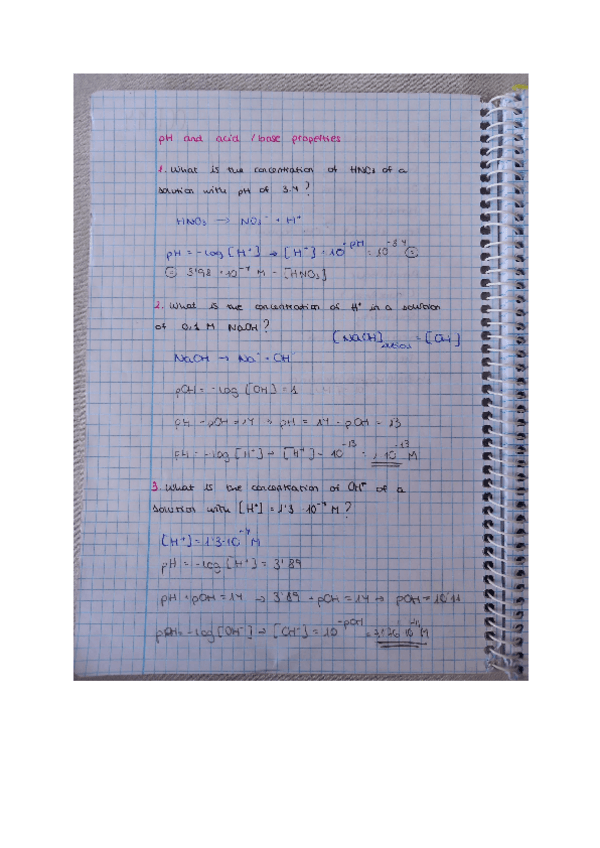 pH and acid / base properties
1. What is the concentration of HNO3 of a
solution with pH of 3.4?
HNO3 → NO3⁻ + H⁺
pH = -log [H⁺] → [H⁺] = 10^-pH = 10^-3.4 =
= 3'98 · 10⁻⁴ M = [HNO3]
2. What is the concentration of H⁺ in a solution
of 0.1 M NaOH?
[NaOH] = [OH]
NaOH → Na⁺ + OH⁻
pOH = -log [OH] = 1
pH + pOH = 14 → pH = 14 - pOH = 13
pH = -log [H⁺] → [H⁺] = 10⁻¹³ = 1·10⁻¹³ M
3. What is the concentration of OH⁻ of a
solution with [H⁺] = 1'3 · 10⁻⁴ M?
[H⁺] = 1'3·10⁻⁴ M
pH = -log [H⁺] = 3'89
pH + pOH = 14 → 3'89 + pOH = 14 → pOH = 10'11
pOH = -log [OH⁻] → [OH⁻] = 10^-pOH = M